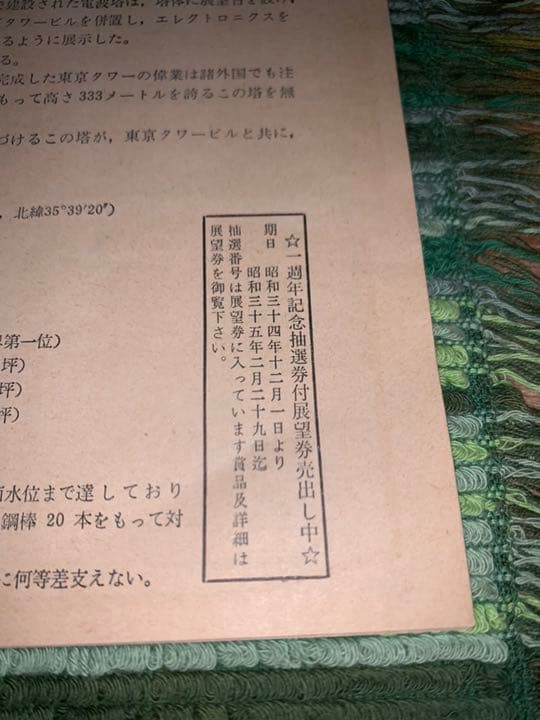 建設された電波塔は，塔体に展望台を設け，
タワービルを併置し，エレクトロニクスを
るように展示した。
る。
完成した東京タワーの偉業は諸外国でも注
もって高さ 333メートルを誇るこの塔を無
づけるこの塔が，東京タワービルと共に，
，北緯35°39′20″）
第一位）
坪）
坪）
坪）
水位まで達しており
鋼棒 20 本をもって対
に何等差支えない。
☆一週年記念抽選券付展望券売出し中☆
期日 昭和三十四年十二月一日より
昭和三十五年二月二十九日迄
抽選番号は展望券に入っています賞品及詳細は
展望券を御覧下さい。